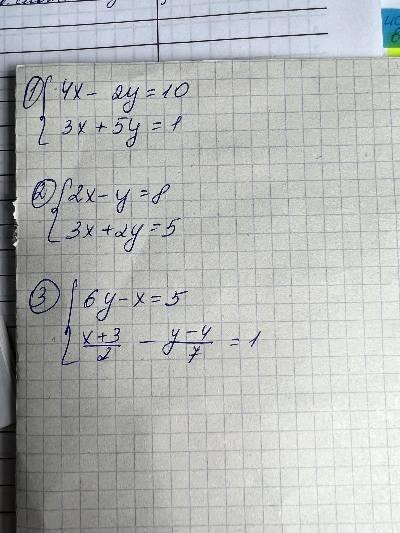 ① { 4x - 2y = 10
3x + 5y = 1
② { 2x - y = 8
3x + 2y = 5
③ { 6y - x = 5
(x+3)/2 - (y-4)/7 = 1